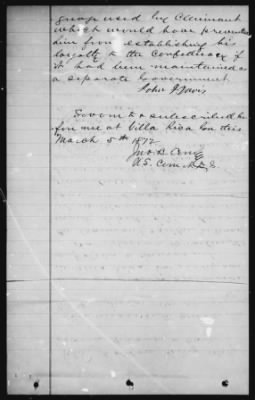 guage used by Claimant
which would have prevented
him from establishing his
loyalty to the Confederacy if
it had been maintained as
a separate Government
John J Davis
Sworn to & subscribed be
fore me at Villa Rica Ga this
March 5th 1872
Jno B.
U.S. Com